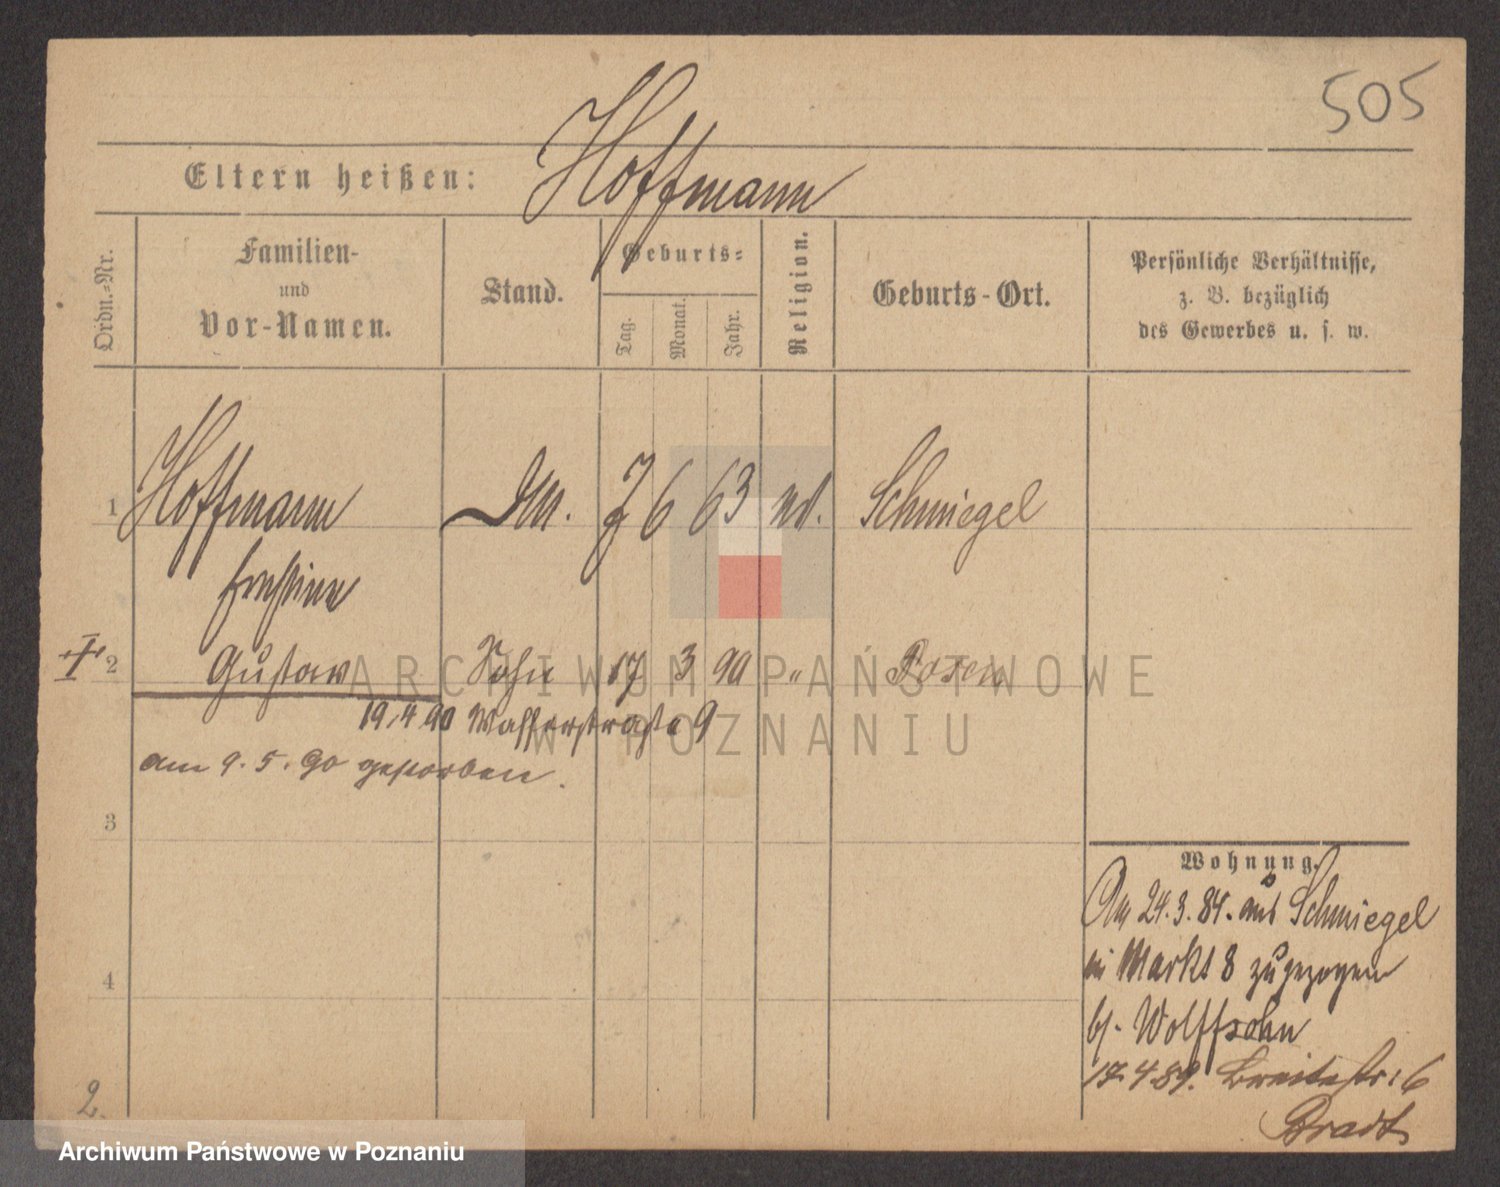 505
Eltern heißen: Hoffmann
Ordn.-Nr.
Familien-
und
Vor-Namen.
Stand.
Geburts-
Tag.
Monat.
Jahr.
Religion.
Geburts-Ort.
Persönliche Verhältnisse,
z. B. bezüglich
des Gewerbes u. s. w.
1 Hoffmann 7 6 63 Schmiegel
Ernstine
2 Gustav Sohn 17 3 90 " Posen
19/4 90 Wasserstraße 9
am 9. 5. 90 gestorben.
3
4
Wohnung.
Am 24.3.84. aus Schmiegel
in Markt 8 zugezogen
b/. Wolffsohn
17.4.89. Breitestr: 6
Bradt
2.
ARCHIWUM PAŃSTWOWE
W POZNANIU
Archiwum Państwowe w Poznaniu